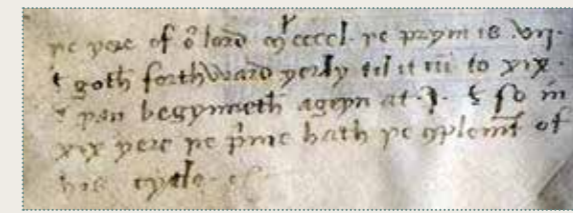 þe yere of oͬ lord Mͥccccl. þe prym is .vij.
& goth forthward yerly til it  to xix.
& þan begynneth ageyn at .j. & so in
xix yere þe p̾me hath þe ꝯplemēt of
his cycle.